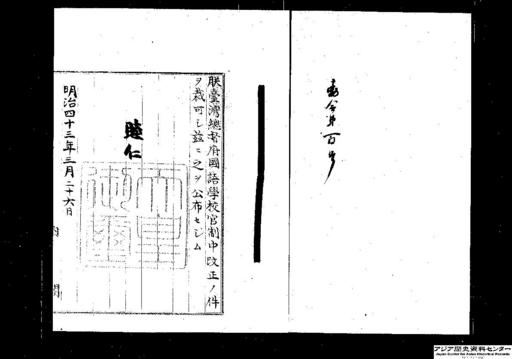 勅令第百号
朕臺灣總督府國語學校官制中改正ノ件
ヲ裁可シ茲ニ之ヲ公布セシム
睦仁
明治四十三年三月二十六日
内閣
アジア歴史資料センター
Japan Center for Asian Historical Records